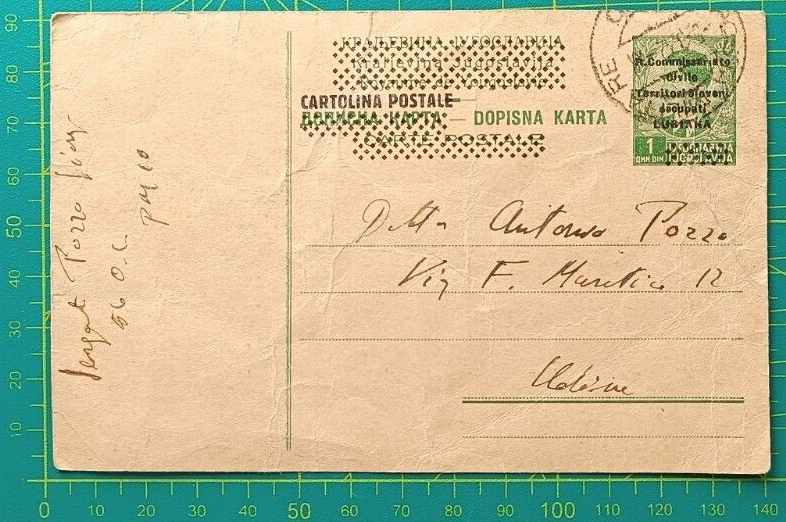 КРАЉЕВИНА ЈУГОСЛАВИЈА
Kraljevina Jugoslavija
Royaume de Yougoslavie
CARTOLINA POSTALE
ДОПИСНА КАРТА — DOPISNA KARTA
CARTE POSTALE
R. Commissariato
Civile
Territori Sloveni
occupati
LUBIANA
1
ДИН DIN
ЈУГОСЛАВИЈА
JUGOSLAVIJA
Ditta Antonio Pozzo
Via F. 12
Udine
Sergente Pozzo
PM 10
90
80
70
60
50
40
30
20
10
0 10 20 30 40 50 60 70 80 90 100 110 120 130 140